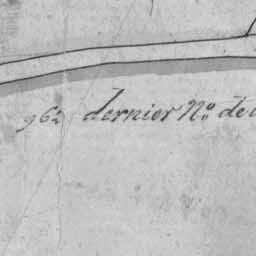 962 dernier No. de